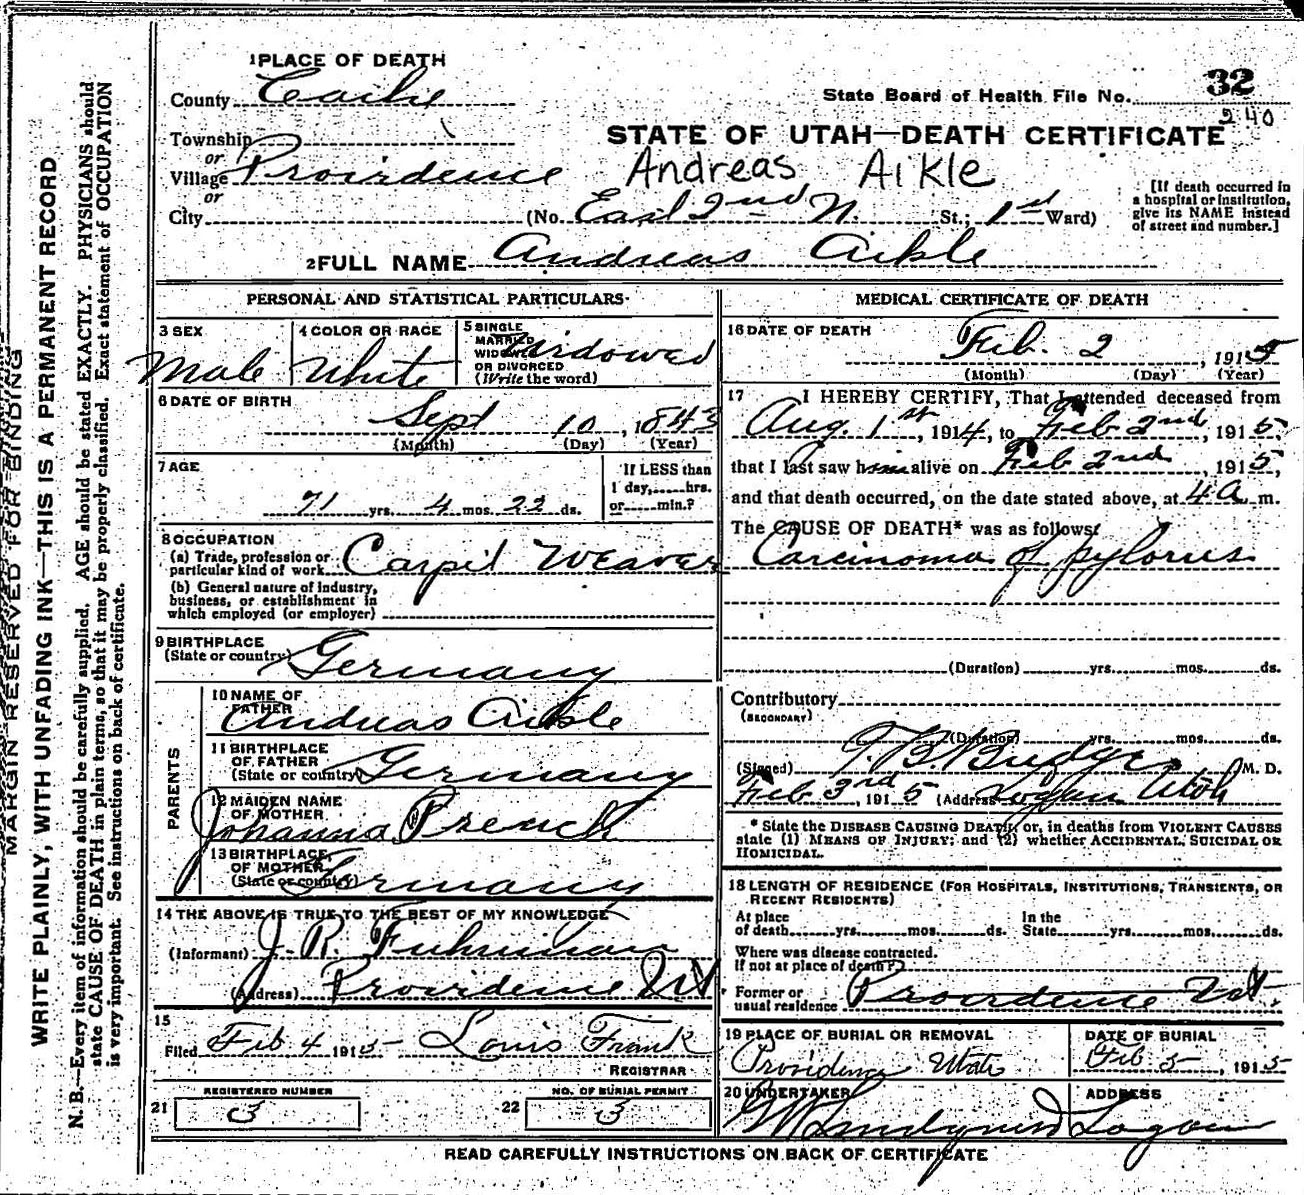 MARGIN RESERVED FOR BINDING
WRITE PLAINLY, WITH UNFADING INK—THIS IS A PERMANENT RECORD
N. B.—Every item of information should be carefully supplied. AGE should be stated EXACTLY. PHYSICIANS should
state CAUSE OF DEATH in plain terms, so that it may be properly classified. Exact statement of OCCUPATION
is very important. See instructions on back of certificate.
1 PLACE OF DEATH
32
County Cache
State Board of Health File No.
240
Township
STATE OF UTAH—DEATH CERTIFICATE
or
Village Providence
Andreas Aikle
or
City (No. East 2nd N. St.; 1st Ward)
[If death occurred in
a hospital or institution,
give its NAME instead
of street and number.]
2 FULL NAME Andreas Aikle
PERSONAL AND STATISTICAL PARTICULARS
3 SEX
Male
4 COLOR OR RACE
White
5 SINGLE
MARRIED
WIDOWED
OR DIVORCED
(Write the word)
Widowed
6 DATE OF BIRTH
Sept 10, 1843
(Month) (Day) (Year)
7 AGE
71 yrs. 4 mos. 22 ds.
If LESS than
1 day, hrs.
or min.?
8 OCCUPATION
(a) Trade, profession or
particular kind of work Carpit Weaver
(b) General nature of industry,
business, or establishment in
which employed (or employer)
9 BIRTHPLACE
(State or country) Germany
PARENTS
10 NAME OF
FATHER
Andreas Aikle
11 BIRTHPLACE
OF FATHER
(State or country) Germany
12 MAIDEN NAME
OF MOTHER
Johanna French
13 BIRTHPLACE
OF MOTHER
(State or country) Germany
14 THE ABOVE IS TRUE TO THE BEST OF MY KNOWLEDGE
(Informant) J. R. Fuhriman
(Address) Providence Ut
15
Filed Feb 4 1915 Louis Frank
REGISTRAR
REGISTERED NUMBER
21 3
NO. OF BURIAL PERMIT
22 3
MEDICAL CERTIFICATE OF DEATH
16 DATE OF DEATH
Feb. 2, 1915
(Month) (Day) (Year)
17 I HEREBY CERTIFY, That I attended deceased from
Aug. 1st, 1914, to Feb 2nd, 1915,
that I last saw him alive on Feb 2nd, 1915,
and that death occurred, on the date stated above, at 4 a m.
The CAUSE OF DEATH* was as follows:
Carcinoma of pylorus
(Duration) yrs. mos. ds.
Contributory
(SECONDARY)
(Duration) yrs. mos. ds.
(Signed) T. B. Budge M. D.
Feb 3rd, 1915 (Address) Logan Utah
* State the DISEASE CAUSING DEATH, or, in deaths from VIOLENT CAUSES
state (1) MEANS OF INJURY; and (2) whether ACCIDENTAL, SUICIDAL OR
HOMICIDAL.
18 LENGTH OF RESIDENCE (FOR HOSPITALS, INSTITUTIONS, TRANSIENTS, OR
RECENT RESIDENTS)
At place
of death yrs. mos. ds.
In the
State yrs. mos. ds.
Where was disease contracted,
If not at place of death?
Former or
usual residence Providence Ut.
19 PLACE OF BURIAL OR REMOVAL
Providence Utah
DATE OF BURIAL
Feb 5, 1915
20 UNDERTAKER
ADDRESS
Logan
READ CAREFULLY INSTRUCTIONS ON BACK OF CERTIFICATE